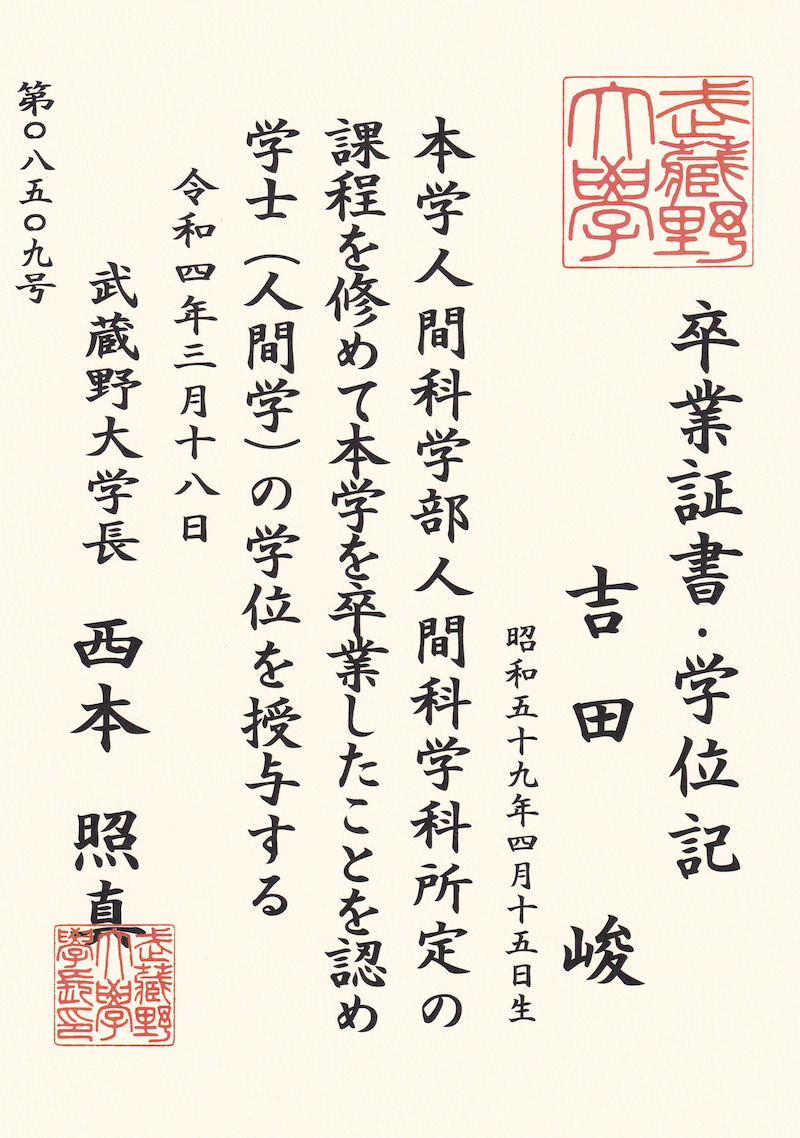 武蔵野
大學
卒業証書・学位記
吉田 峻
昭和五十九年四月十五日生
本学人間科学部人間科学科所定の
課程を修めて本学を卒業したことを認め
学士（人間学）の学位を授与する
令和四年三月十八日
武蔵野大学長 西本 照真
武蔵野
大學
學長印
第〇八五〇九号